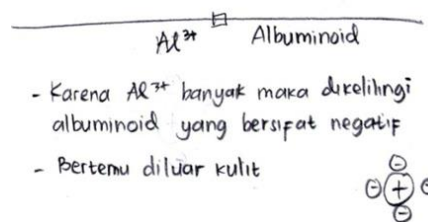 Al³⁺ Albuminoid
- Karena Al³⁺ banyak maka dikelilingi
albuminoid yang bersifat negatif
- Bertemu diluar kulit
⊖
⊖ ⊕ ⊖
⊖